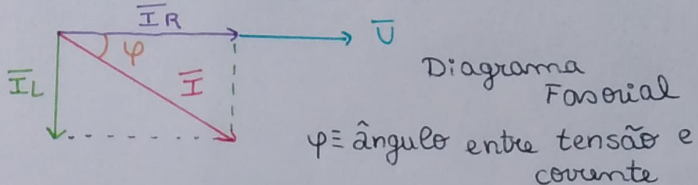 I̅R
U̅
φ
I̅L
I̅
Diagrama
Fasorial
φ ≡ ângulo entre tensão e
corrente